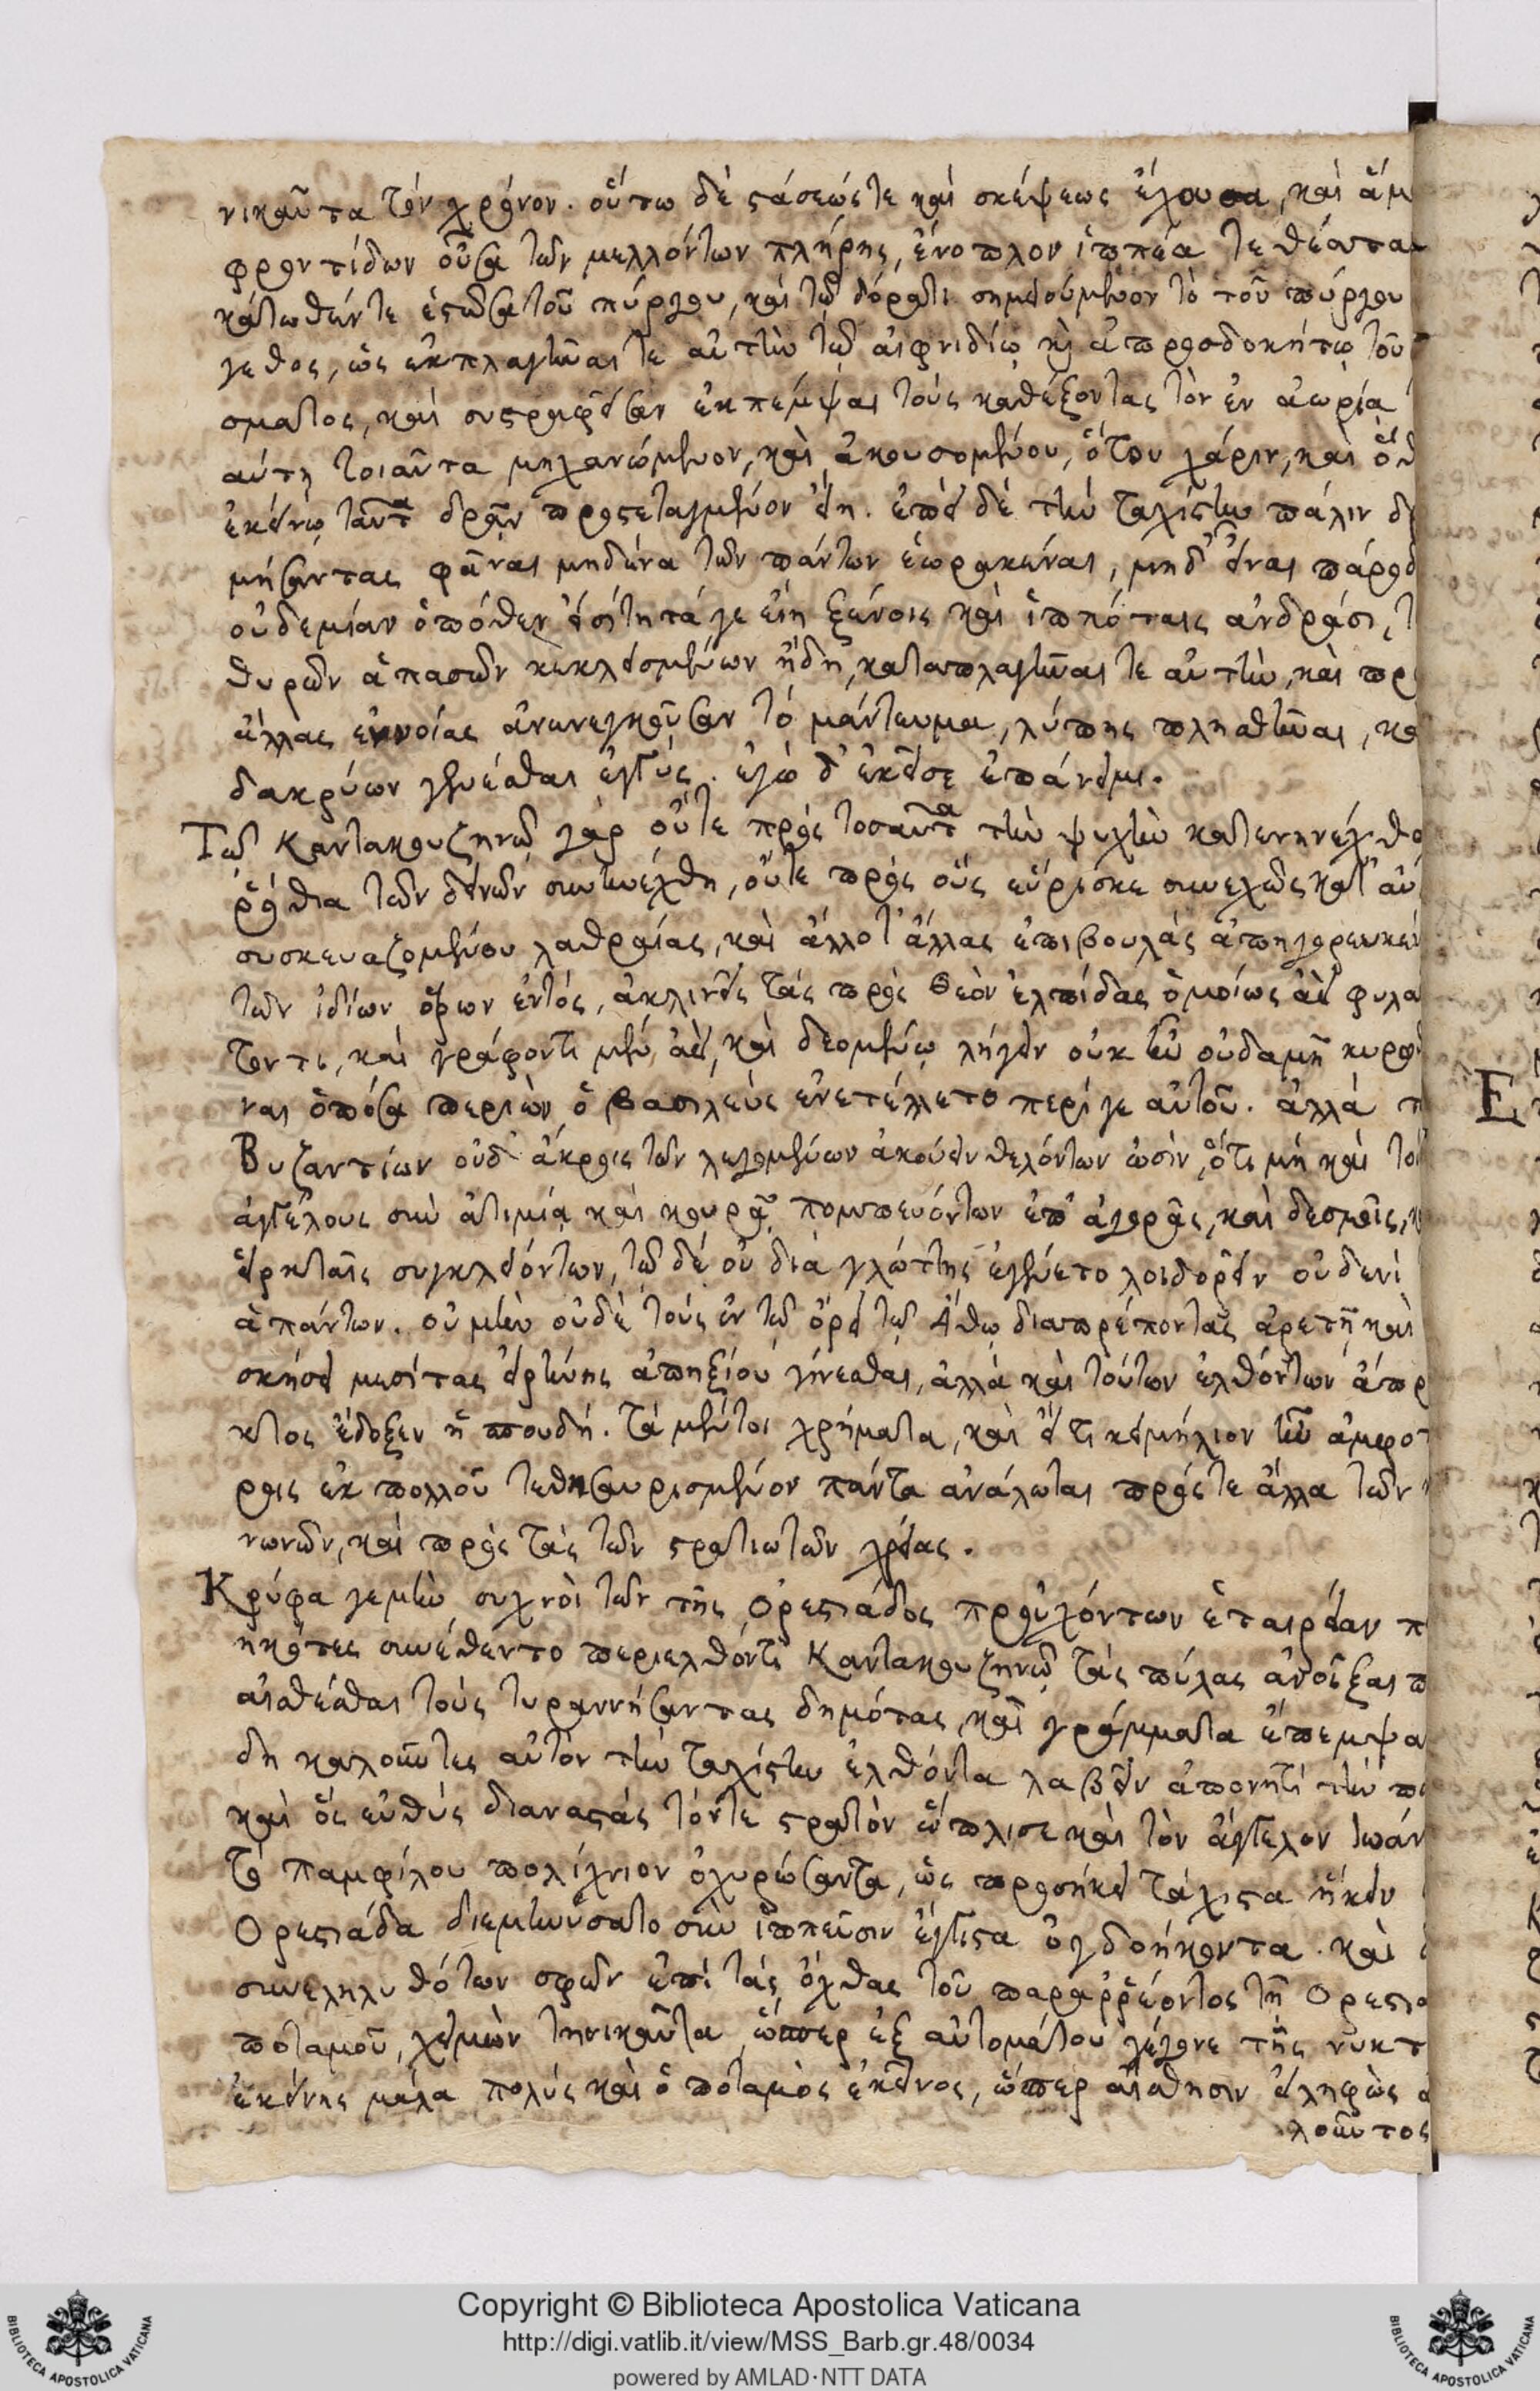 νικαῦτα τὸν χρόνον. οὕτω δὲ στάσεώς τε καὶ σκέψεως ἔχουσα, καὶ ἅμ
φροντίδων οὖσα τῶν μελλόντων πλήρης, ἔνοπλον ἱππέα τεθέαται
κάτωθέν τε ἑστῶτα τοῦ πύργου, καὶ τῷ δόρατι σημειούμενον τὸ τοῦ πύργου
γεθος, ὡς ἐκπλαγῆναί τε αὐτὴν τῷ αἰφνιδίῳ καὶ ἀπροσδοκήτῳ τοῦ
σματος, καὶ συστραφεῖσαν ἐκπέμψαι τοὺς καθέξοντας τὸν ἐν ἀωρίᾳ
αύτη τοιαῦτα μηχανώμενον, καὶ ἀκουσομένου, ὅτου χάριν, καὶ
ἐκείνῳ ταῦτα δρᾷν προστεταγμένον εἴη. ἐπεὶ δὲ τὴν ταχίστην πάλιν δρ
μήσαντας φᾶναι μηδένα τῶν πάντων ἑωρακέναι, μηδ' εἶναι πάροδ
οὐδεμίαν ὁπόθεν εἰσίτητά γε εἴη ξένοις καὶ ἱππόταις ἀνδράσι, τ
θυρῶν ἁπασῶν κεκλεισμένων ἤδη, καταπλαγῆναί τε αὐτὴν, καὶ πρ
ἄλλας ἐννοίας ἀνενεγκοῦσαν τὸ μάντευμα, λύπης πλησθῆναι, κα
δακρύων γενέσθαι ἐγγύς. ἐγὼ δ' ἐκεῖσε ἐπάνειμι.
Τῷ Καντακουζηνῷ γὰρ οὔτε πρὸς τοσαῦτα τὴν ψυχὴν κατενηνέχθα
ῥόθια τῶν δεινῶν συνηνέχθη, οὔτε πρὸς οὓς εὕρισκε συνεχῶς κατ' αὐ
συσκευαζομένου λαθραίας, καὶ ἄλλοτ' ἄλλας ἐπιβουλὰς ἀπηγορευκέν
τῶν ἰδίων ὅρων ἐντὸς, ἀκλινεῖς τὰς πρὸς Θεὸν ἐλπίδας ὁμοίως ἀεὶ φυλα
τοντι, καὶ γράφοντι μὲν ἀεὶ, καὶ δεομένῳ λήγειν οὐκ ἦν οὐδαμῆ κυρω
ναι ὁπόσα περιὼν ὁ βασιλεὺς ἐνετέλλετο περί γε αὐτοῦ. ἀλλὰ τ
Βυζαντίων οὐδ' ἄκροις τῶν λεγομένων ἀκούειν θελόντων ὠσὶν, ὅτι μὴ καὶ το
ἀγγέλους σὺν ἀτιμίᾳ καὶ κουρᾷ πομπευόντων ἐπ' ἀγορᾶς, καὶ δεσμοῖς, κ
εἱρκταῖς συγκλειόντων, τῷ δὲ οὐ διὰ γλώττης ἐγένετο λοιδορεῖν οὐδενὶ
ἁπάντων. οὐ μὴν οὐδὲ τοὺς ἐν τῷ ὄρει τῷ Ἄθῳ διαπρέποντας ἀρετῇ καὶ
σκήσει μεσίτας εἰρήνης ἀπηξίου γίνεσθαι, ἀλλὰ καὶ τούτων ἐλθόντων ἄπρ
κτος ἔδοξεν ἡ σπουδή. τὰ μέντοι χρήματα, καὶ εἴ τι κειμήλιον ἦν ἀμφοτ
ροις ἐκ πολλοῦ τεθησαυρισμένον πάντα ἀνάλωται πρός τε ἄλλα τῶν
νωνῶν, καὶ πρὸς τὰς τῶν στρατιωτῶν χρείας.
Κρύφα γε μὴν συχνοὶ τῶν τῆς Ὀρεστιάδος προὐχόντων ἑταιρείαν π
ηκότες συνέθεντο περιελθόντι Καντακουζηνῷ τὰς πύλας ἀνοῖξαι π
αισθέσθαι τοὺς τυραννήσαντας δημότας, καὶ γράμματα ἔπεμψα
δη καλοῦντες αὐτὸν τὴν ταχίστην ἐλθόντα λαβεῖν ἀπονητὶ τὴν πό
καὶ ὃς εὐθὺς διαναστὰς τόν τε στρατὸν ὥπλισε καὶ τὸν ἄγγελον Ἰωάν
τὸ Παμφίλου πολίχνιον ὀχυρώσαντα, ὡς προσήκει τάχιστα ἥκειν
Ὀρεστιάδα διεμηνύσατο σὺν ἱππεῦσιν ἔγγιστα ὀγδοήκοντα. καὶ
συνεληλυθότων σφῶν ἐπὶ τὰς ὄχθας τοῦ παραῤῥέοντος τῇ Ὀρεστιά
ποταμοῦ, χειμὼν τηνικαῦτα, ὥσπερ ἐξ αὐτομάτου γέγονε τῆς νυκτ
ἐκείνης μάλα πολὺς καὶ ὁ ποταμὸς ἐκεῖνος, ὥσπερ αἴσθησιν εἰληφὼς
λοῦντος
Ε
Copyright © Biblioteca Apostolica Vaticana
http://digi.vatlib.it/view/MSS_Barb.gr.48/0034
powered by AMLAD·NTT DATA
BIBLIOTECA APOSTOLICA VATICANA
BIBLIOTECA APOSTOLICA VATICANA